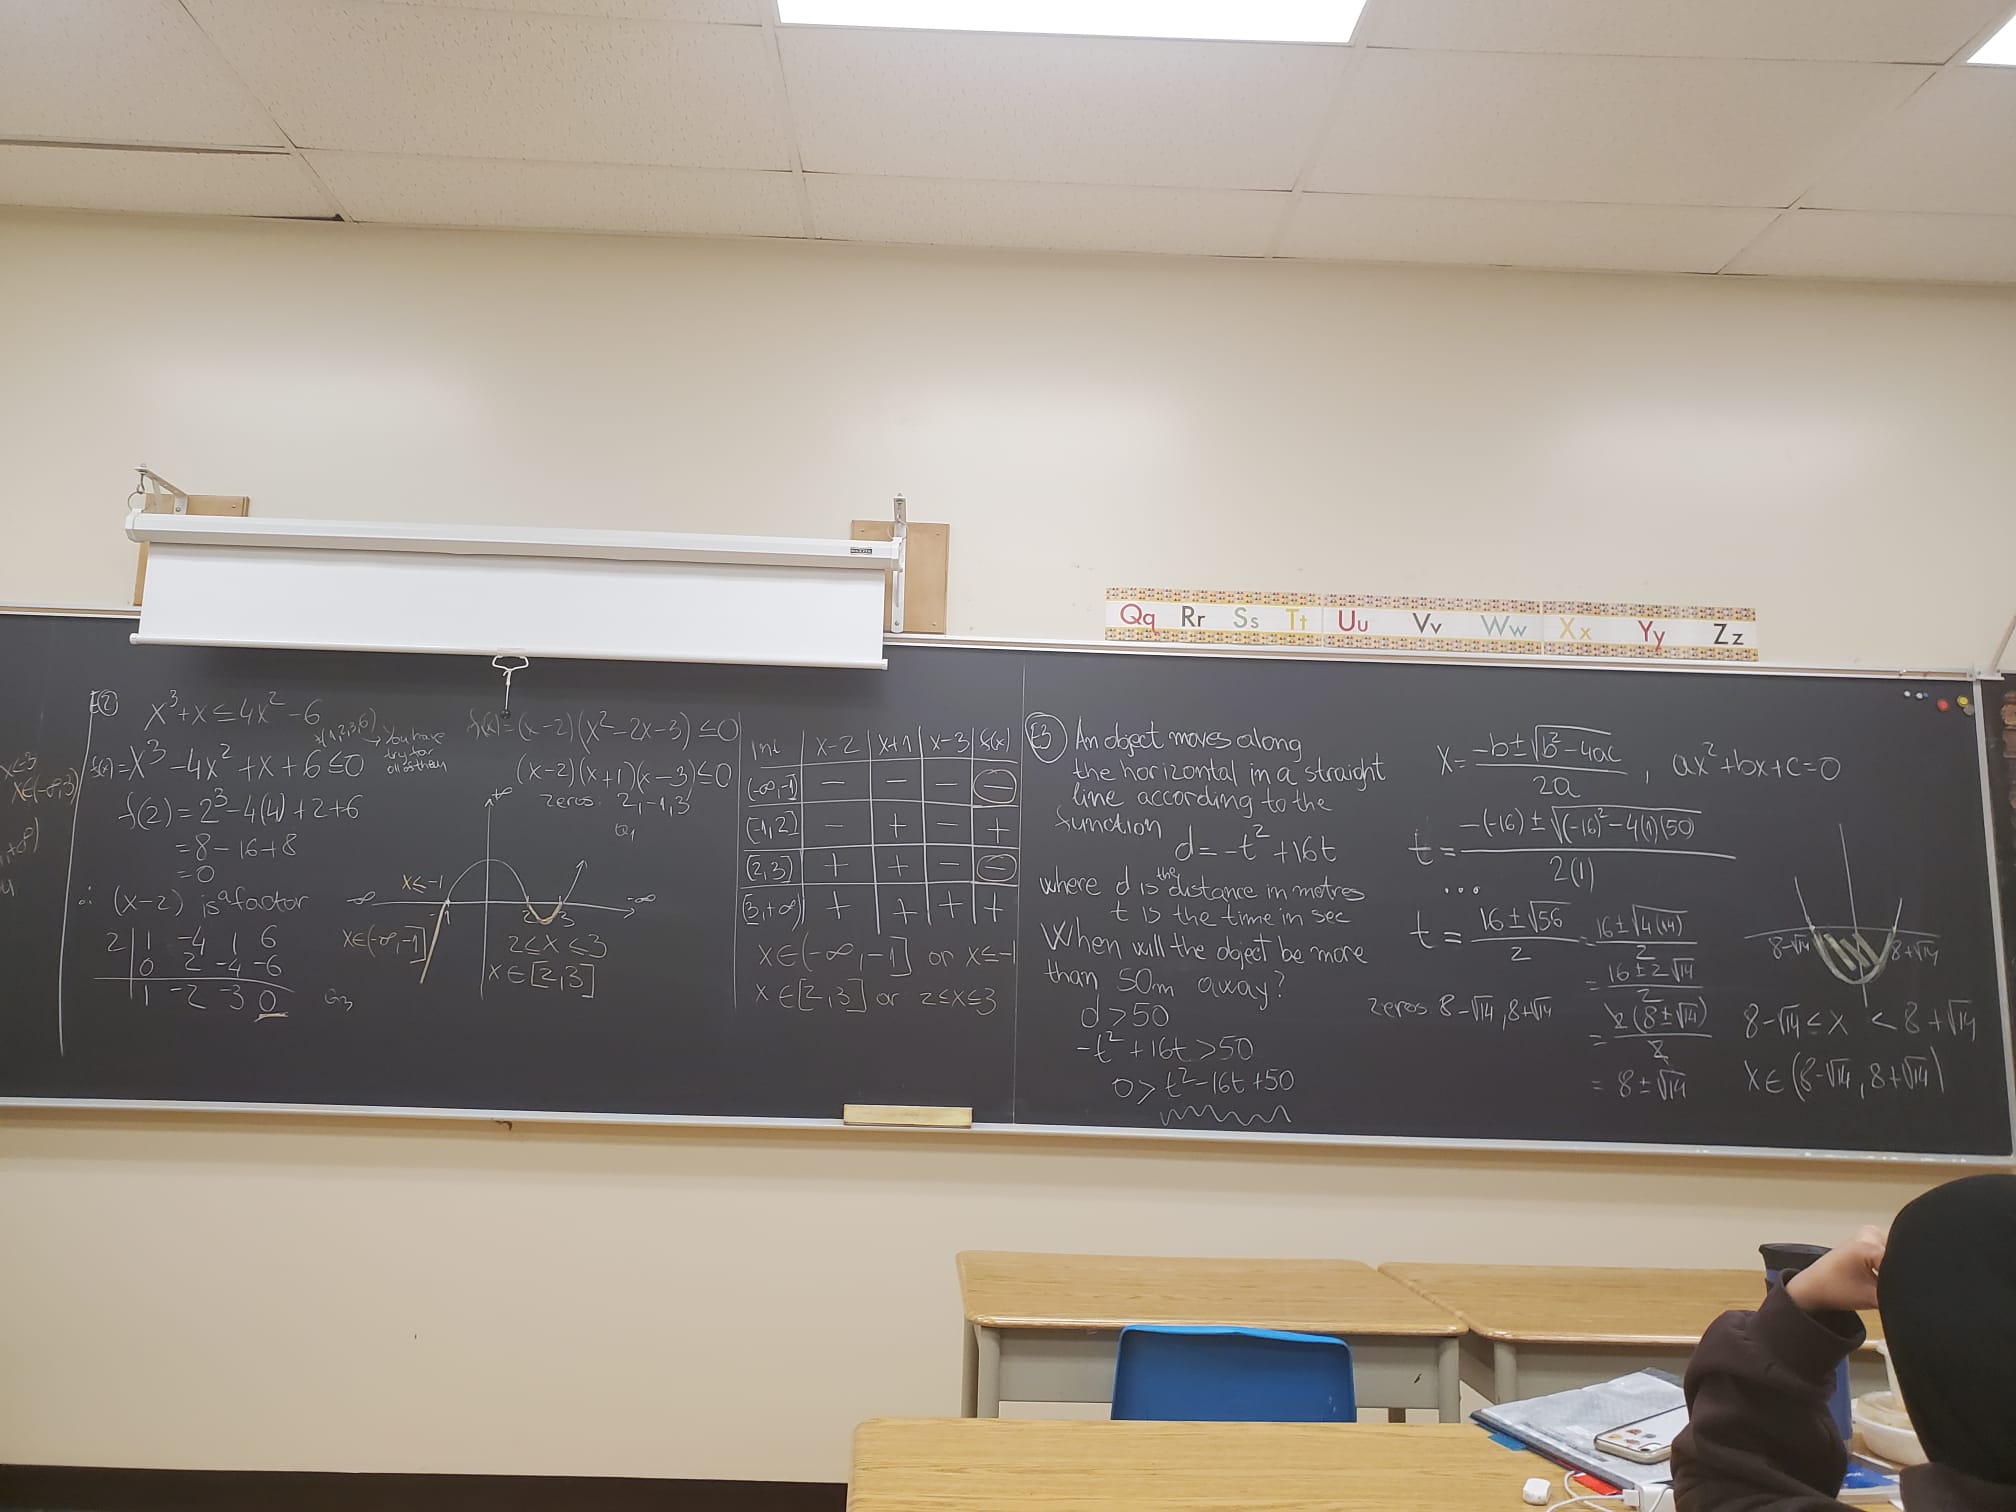 Qq Rr Ss Tt Uu Vv Ww Xx Yy Zz
x<-3
x∈(-∞,3)
E2
x³+x≤4x²-6
f(x)=x³-4x²+x+6≤0
±(1,2,3,6)
→ You have
try for
all of them
f(2)=2³-4(4)+2+6
=8-16+8
=0
∴ (x-2) is a factor
2| 1 -4 1 6
0 2 -4 -6
1 -2 -3 0
Q3
f(x)=(x-2)(x²-2x-3)≤0
(x-2)(x+1)(x-3)≤0
zeros: 2,-1,3
Q1
+∞
x≤-1
-∞
-1
2 3
-∞
x∈(-∞,-1]
2≤x≤3
x∈[2,3]
Int x-2 x+1 x-3 f(x)
(-∞,-1] - - - -
(-1,2) - + - +
[2,3] + + - -
(3,+∞) + + + +
x∈(-∞,-1] or x≤-1
x∈[2,3] or 2≤x≤3
E3 An object moves along
the horizontal in a straight
line according to the
function
d=-t²+16t
where d is the distance in metres
t is the time in sec
When will the object be more
than 50m away?
d>50
-t²+16t>50
0>t²-16t+50
x=-b±√b²-4ac/2a , ax²+bx+c=0
t=-(-16)±√(-16)²-4(1)(50)/2(1)
...
t=16±√56/2=16±√4(14)/2
=16±2√14/2
=2(8±√14)/2
=8±√14
zeros 8-√14, 8+√14
8-√14 8+√14
8-√14≤x <8+√14
x∈(8-√14, 8+√14)